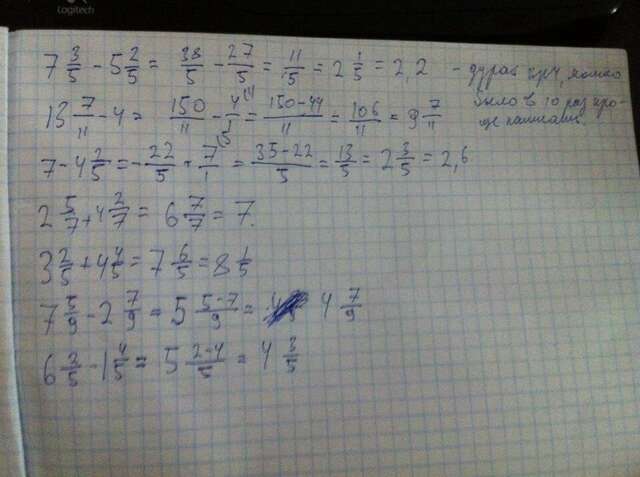 Logitech
7 3/5 - 5 2/5 = 38/5 - 27/5 = 11/5 = 2 1/5 = 2,2 - дурак
было в 10 раз про-
13 7/11 - 4 = 150/11 - 4/1 (11 = 150-44/11 = 106/11 = 9 7/11
ще написать.
7 - 4 2/5 = - 22/5 + 7/1 = 35-22/5 = 13/5 = 2 3/5 = 2,6
2 5/7 + 4 2/7 = 6 7/7 = 7.
3 2/5 + 4 4/5 = 7 6/5 = 8 1/5
7 5/9 - 2 7/9 = 5 5-7/9 = 4 7/9
6 2/5 - 1 4/5 = 5 2-4/5 = 4 3/5